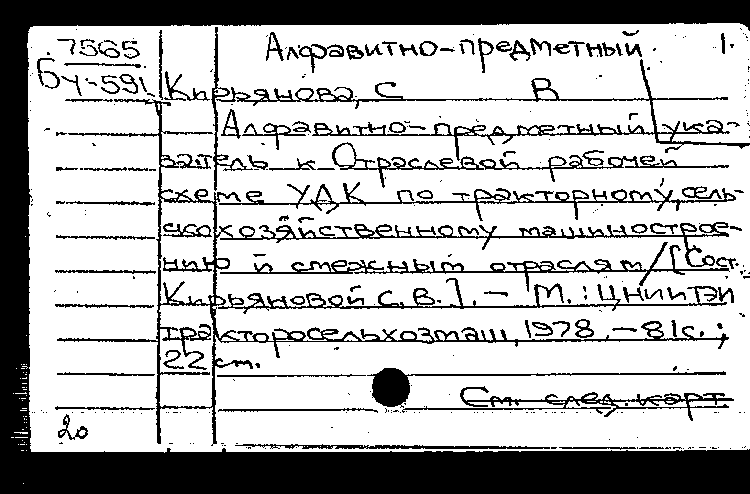 7565 Алфавитно-предметный 1.
Бч-591
Кирьянова, С В
Алфавитно-предметный ука-
затель к Отраслевой рабочей
схеме УДК по тракторному, сель-
скохозяйственному машинострое-
нию и смежным отраслям / [Сост.
Кирьяновой С. В.]. - М.: ЦНИИТЭИ
тракторосельхозмаш, 1978. - 81с.;
22 см.
См. след. карт.
20